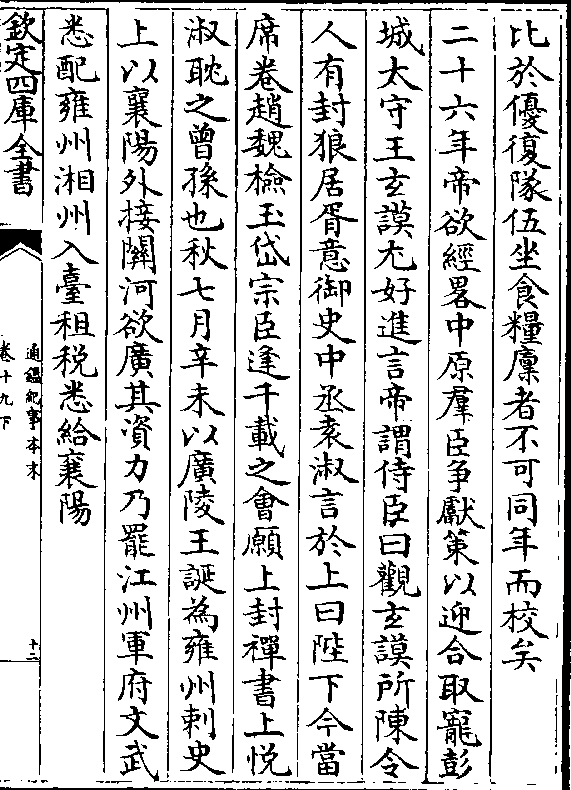 比於優復隊伍坐食糧廩者不可同年而校矣
二十六年帝欲經畧中原羣臣争獻策以迎合取寵彭
城太守王玄謨尤好進言帝謂侍臣曰觀玄謨所陳令
人有封狼居胥意御史中丞袁淑言於上曰陛下今當
席卷趙魏檢玉岱宗臣逢千載之會願上封禪書上悦
淑耽之曾孫也秋七月辛未以廣陵王誕為雍州刺史
上以襄陽外接關河欲廣其資力乃罷江州軍府文武
悉配雍州湘州入臺租税悉給襄陽
欽定四庫全書
通鑑紀事本末
卷十九下
十二